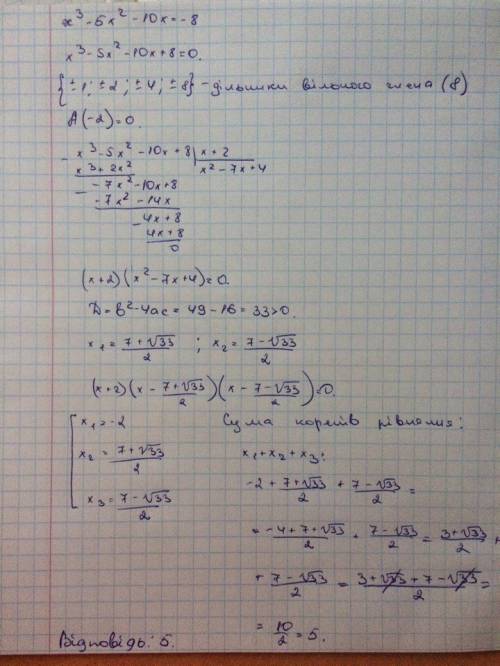 x³-5x²-10x=-8
x³-5x²-10x+8=0.
{±1; ±2; ±4; ±8} - дільники вільного члена (8)
A(-2)=0.
- x³-5x²-10x+8 | x+2
x³+2x² | x²-7x+4
- -7x²-10x+8
-7x²-14x
- 4x+8
4x+8
0
(x+2)(x²-7x+4)=0.
D=b²-4ac=49-16=33>0.
x₁=(7+√33)/2 ; x₂=(7-√33)/2
(x+2)(x-(7+√33)/2)(x-(7-√33)/2)=0.
[ x₁=-2
x₂=(7+√33)/2
x₃=(7-√33)/2
Сума коренів рівняння:
x₁+x₂+x₃:
-2+(7+√33)/2+(7-√33)/2=
=(-4+7+√33)/2+(7-√33)/2=(3+√33)/2+
+(7-√33)/2=(3+√33+7-√33)/2=
=10/2=5.
Відповідь: 5.